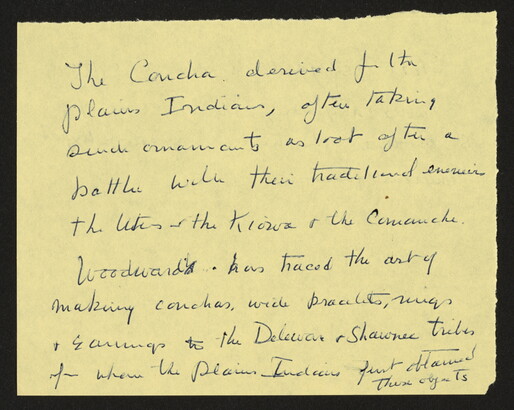 The Concha. derived f the
Plains Indians, often taking
such ornaments as loot after a
battle with their traditional enemies
the Utes & the Kiowa & the Comanche.
Woodward . has traced the art of
making conchas, wide bracelets, rings
& earrings to the Delewar & Shawnee tribes
fr whom the Plains Indians first obtained
these objects